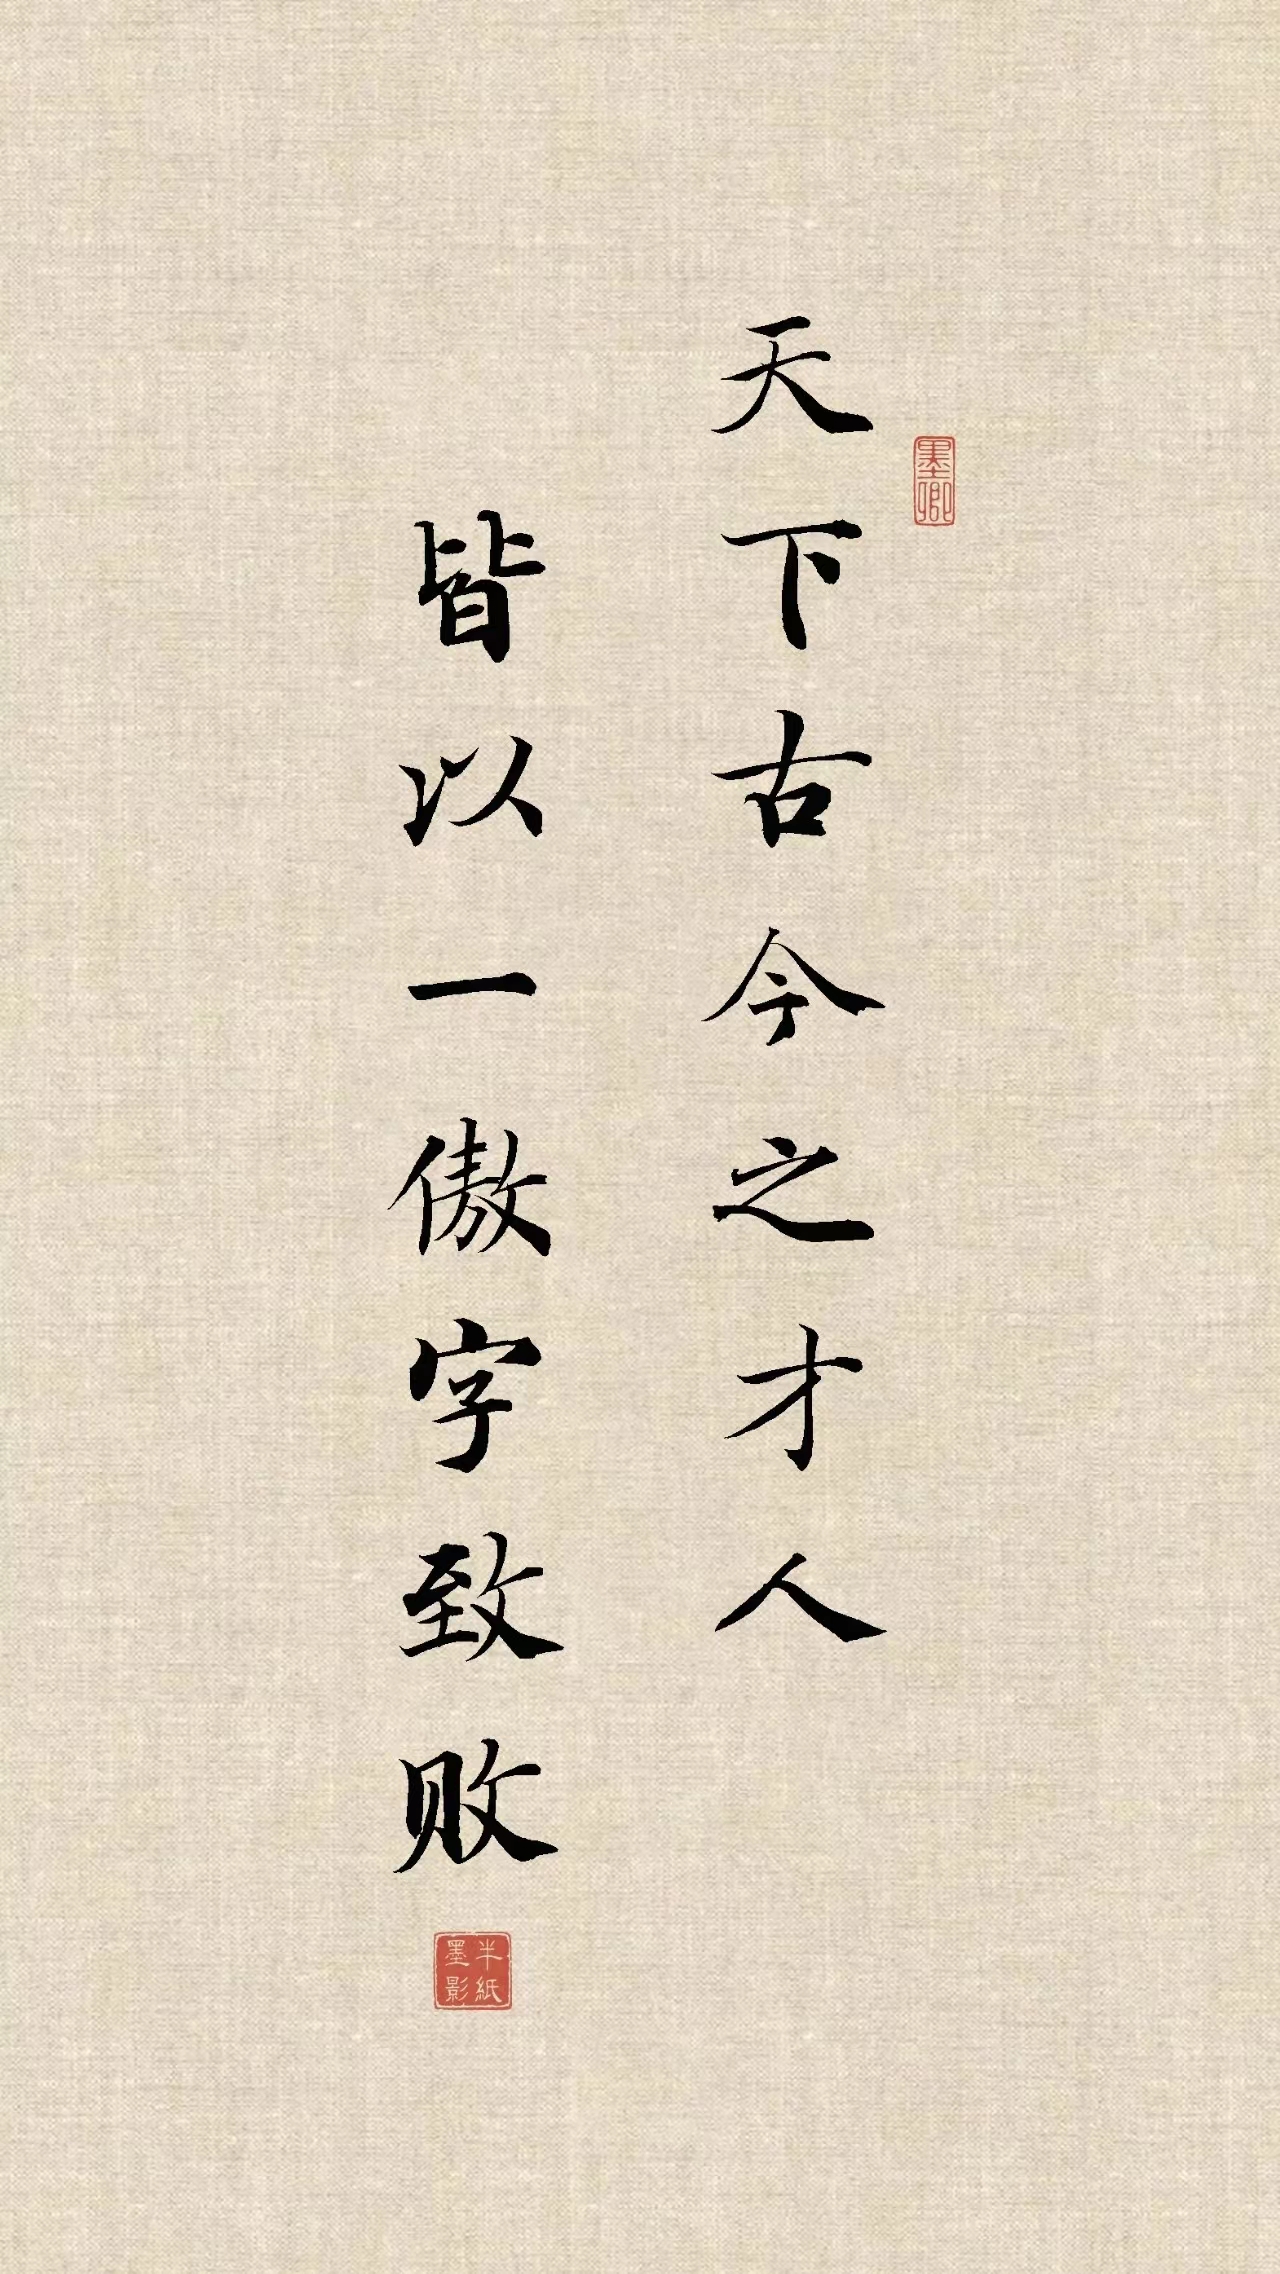 天下古今之才人
墨卿
皆以一傲字致败
半紙
墨影